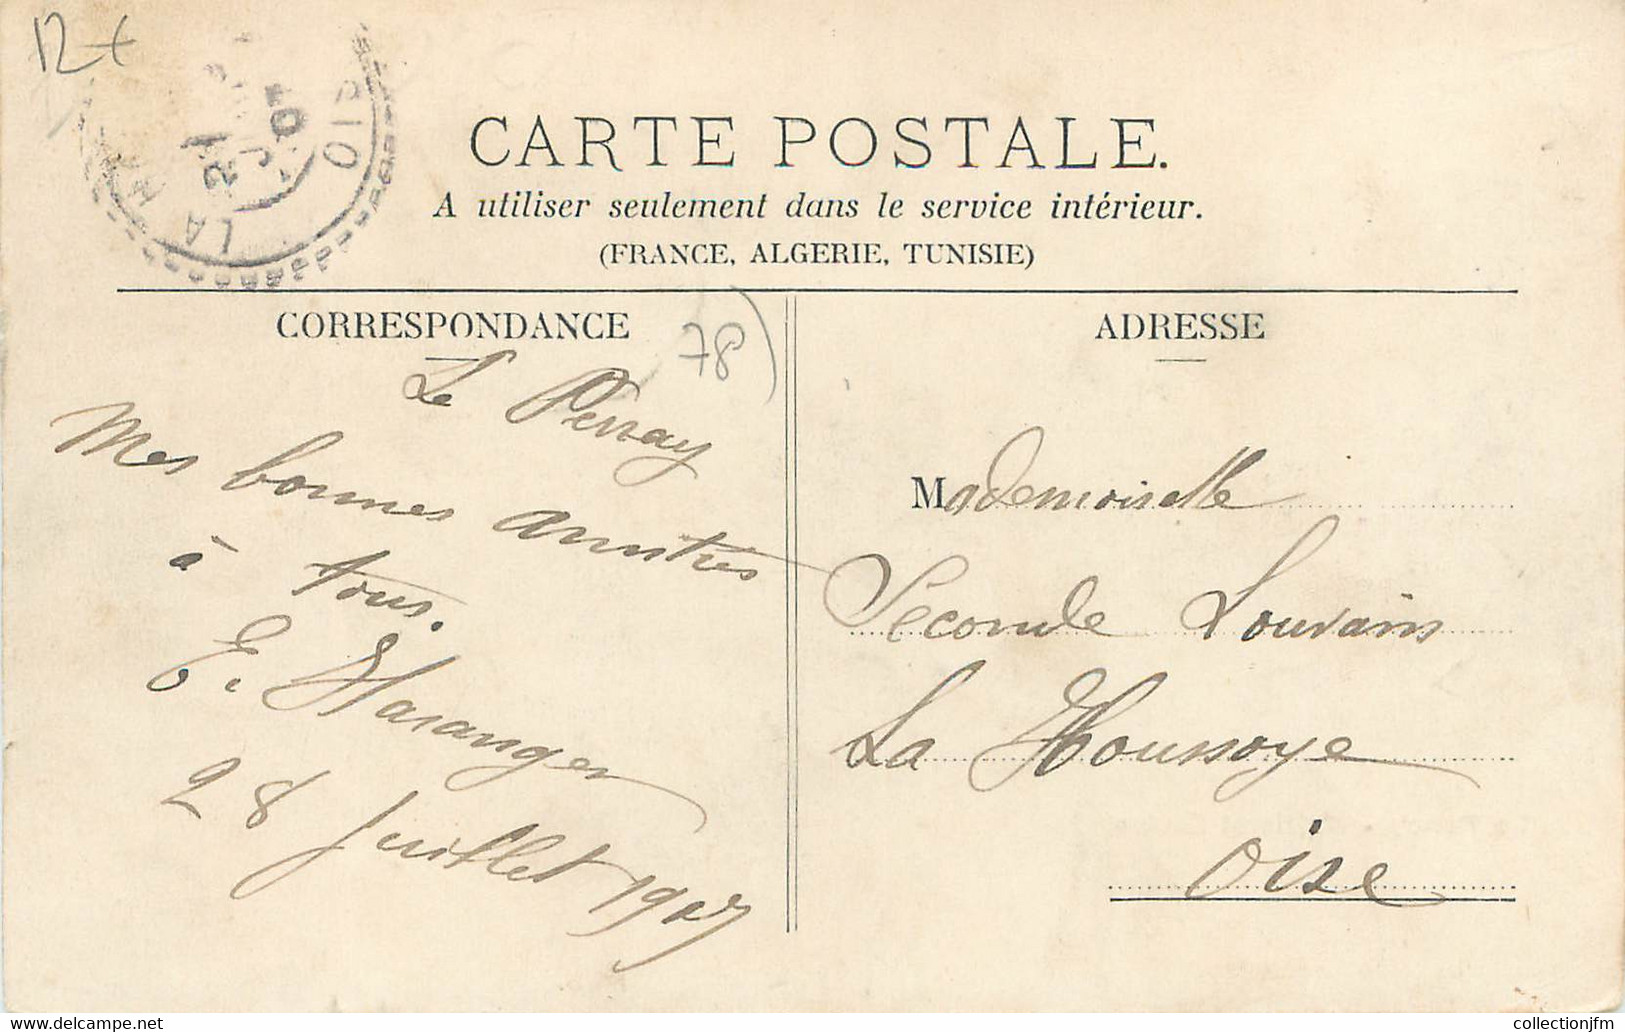 12+
LA H
OIS
CARTE POSTALE.
A utiliser seulement dans le service intérieur.
(FRANCE, ALGERIE, TUNISIE)
CORRESPONDANCE
78)
Le Perray
Mes bonnes amitiés
à tous.
E. Haranger
28 Juillet 1907
ADRESSE
Mademoiselle
Seconde Louvain
La Houssoye
Oise
collectionjfm